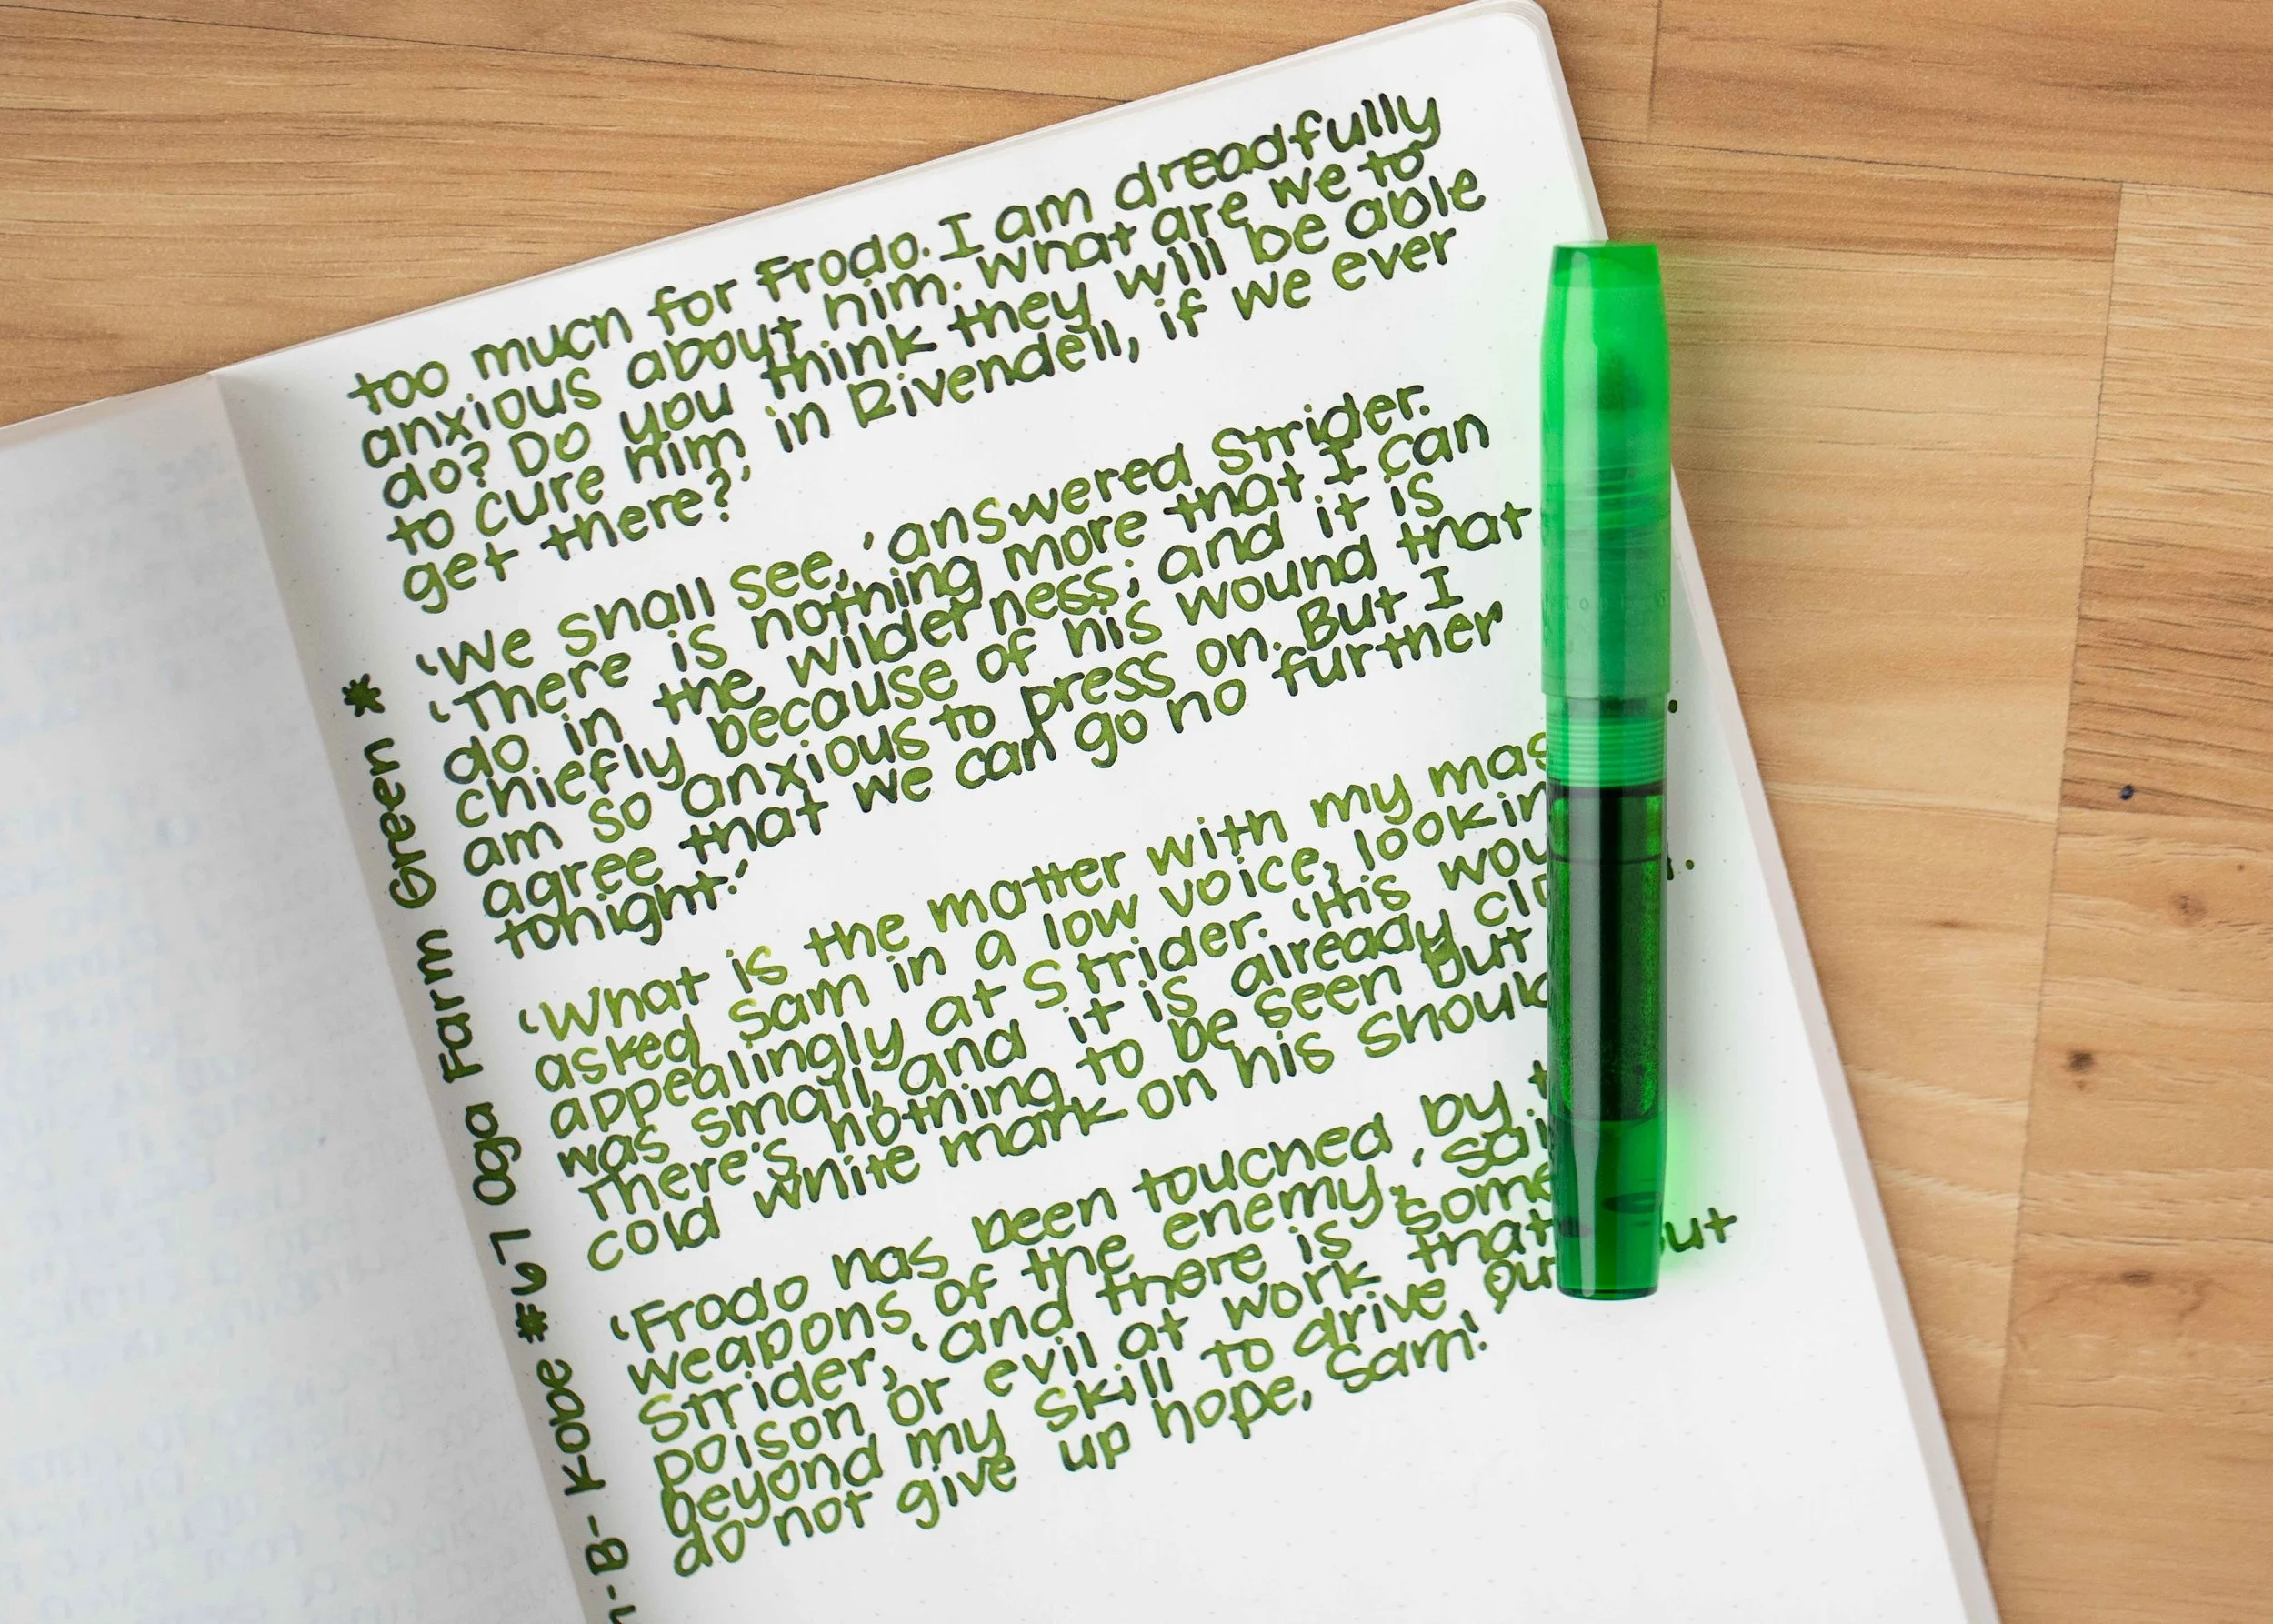 too much for Frodo. I am dreadfully
anxious about him. What are we to
do? Do you think they will be able
to cure him in Rivendell, if we ever
get there?'
'We shall see,' answered Strider.
'There is nothing more that I can
do in the wilderness; and it is
chiefly because of his wound that
am so anxious to press on. But I
agree that we can go no further
tonight.'
'What is the matter with my mas
asked Sam in a low voice, lookin
appealingly at Strider. 'His wou
was small, and it is already clo
There's nothing to be seen but
cold white mark on his should
'Frodo has been touched by t
weapons of the enemy,' sai
Strider, 'and there is some
poison or evil at work that out
beyond my skill to drive ou
do not give up hope, Sam!'
-B- Kobe #67 Oga Farm Green *